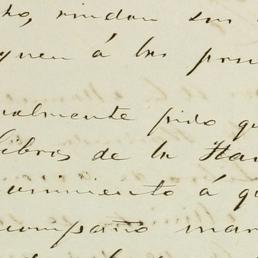 to, rindan sus
quen á las pru
ualmente pido qu
libros de la Ha
cimiento á q
compaño mar